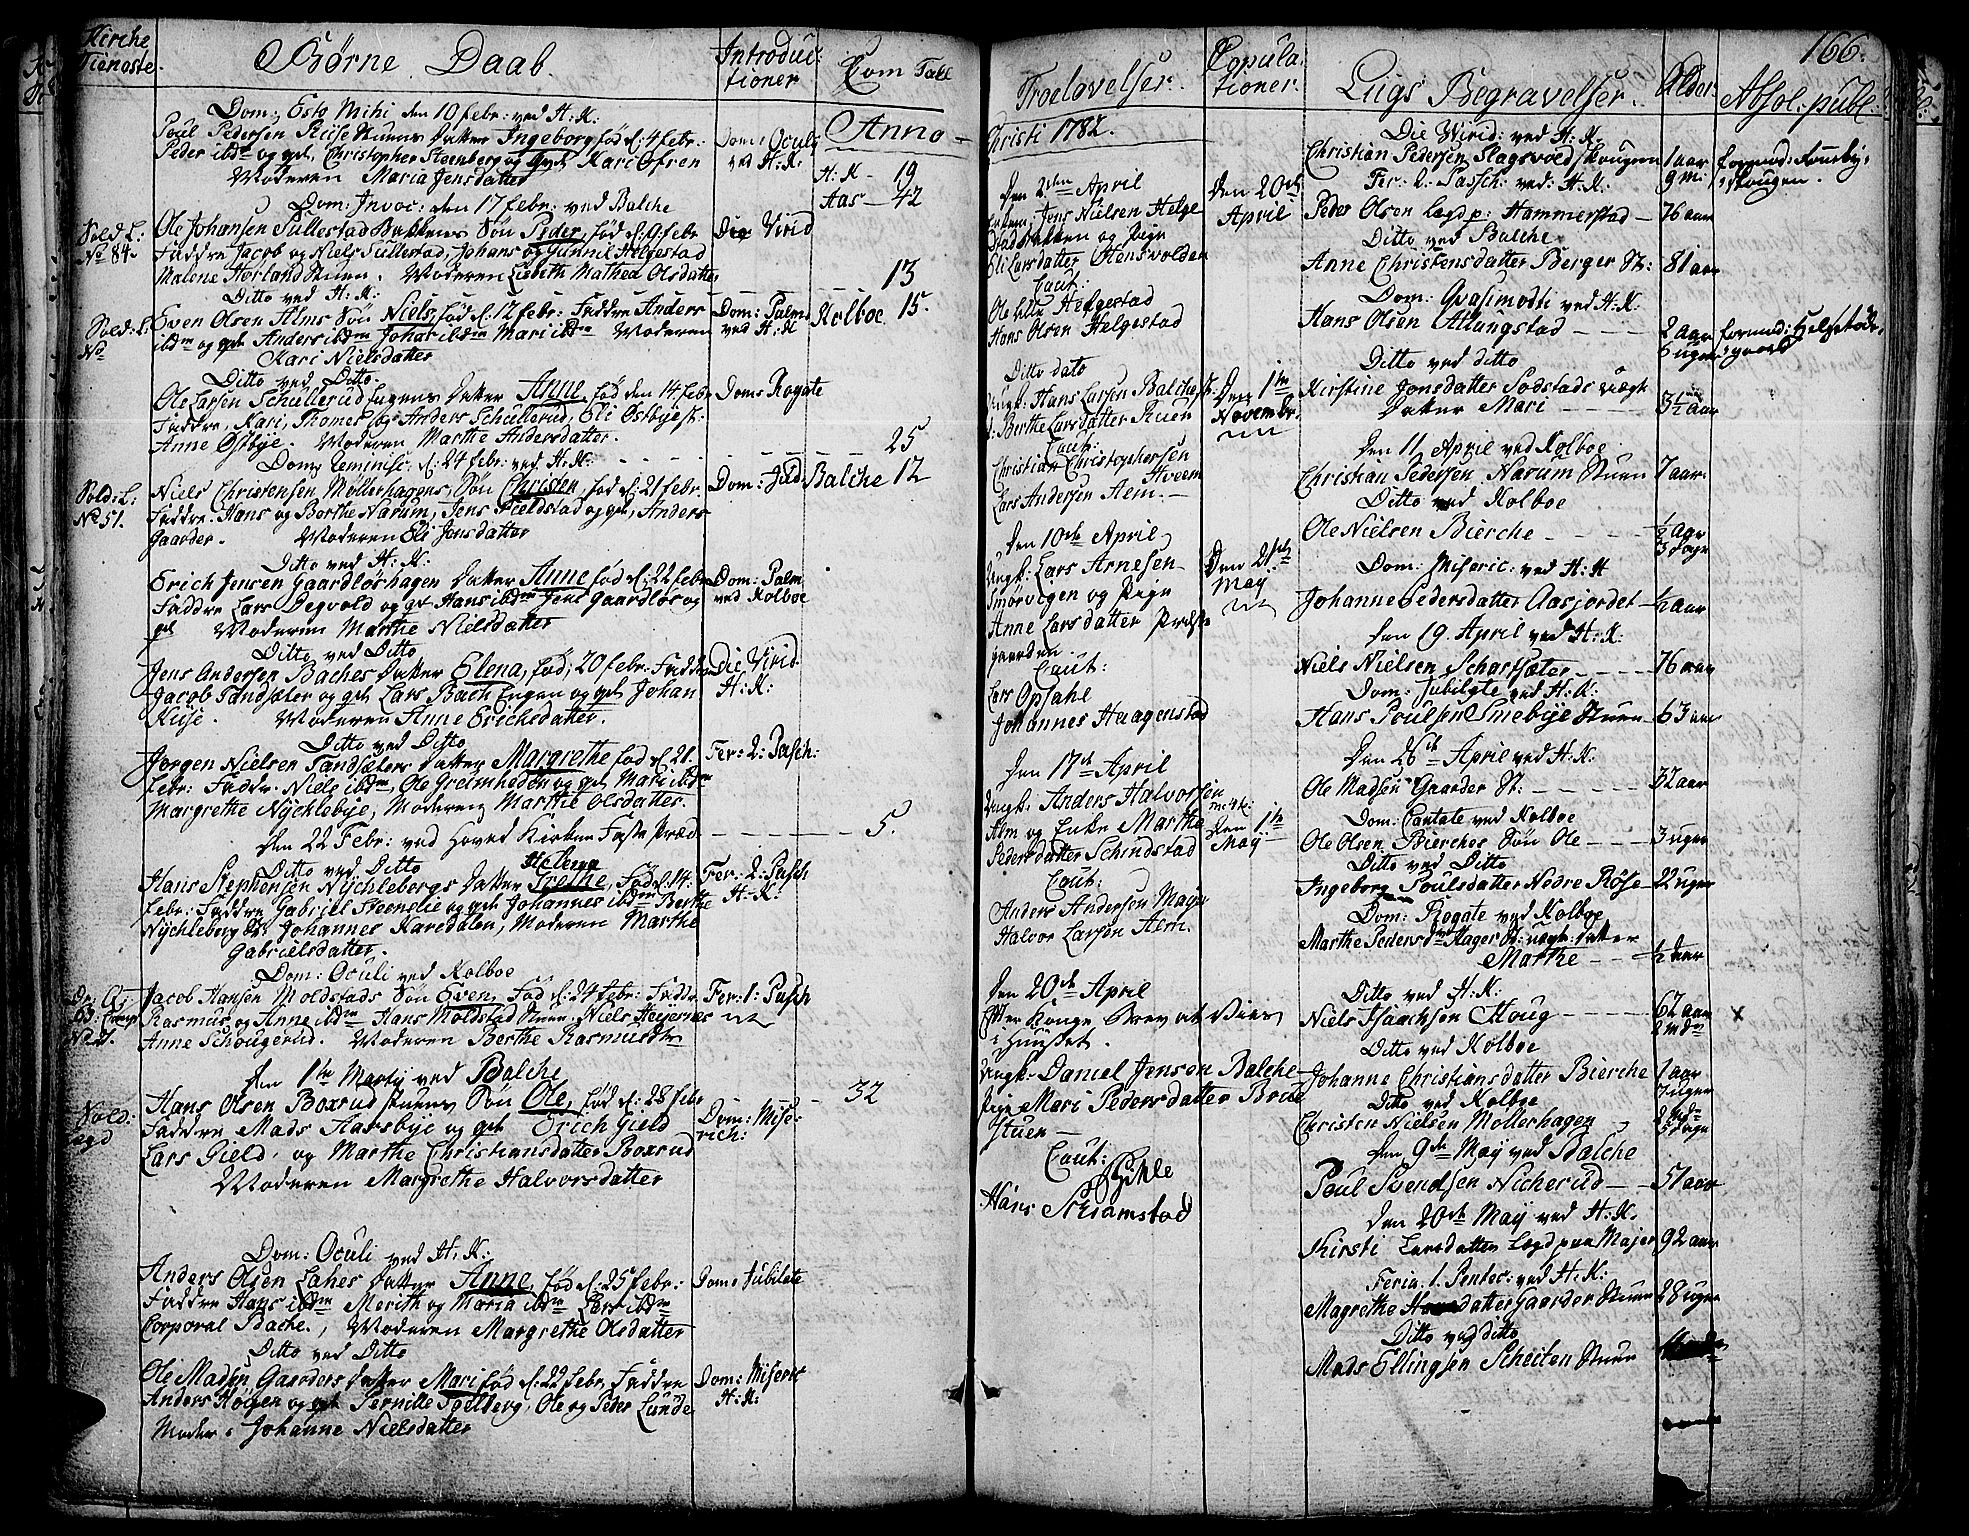 Kirche
Tieneste.
Børne Daab.
Introduc-
tioner
Com Tall
Dom: Esto Mihi den 10 febr: ved H: K:
Poul Pedersen Reise Stuens Datter Ingeborg fød d: 4 febr:
Peder ibdm og qvd, Christopher Steenberg og Kari Ofren
Moderen Maria Jensdatter
Dom: Oculi
ved H: K:
Anno
H: K - 19
Aas - 42
Dom: Invoc: den 17 febr: ved Balche
Sold: L:
No 84.
Ole Johansen Sullestad Bakkens Søn Peder, fød d: 9 febr
Faddre Jacob og Niels Sullestad, Johans og Gunnil Helgestad
Malene Horland Stuen. Moderen Lisbeth Mathea Olsdatter
Die Virid
13
Ditto ved H: K:
Sold: L:
No
Even Olsen Alms Søn Niels, fød d: 12 febr: Faddre Anders
ibdm og qvd Anders ibdm Johan ibdm Mari ibdm Moderen
Mari Nielsdatter
Dom: Palm
ved H: K
Kolboe 15.
Ditto ved Ditto.
Ole Larsen Schullerud Datter Anne fød den 14 febr
Faddre, Kari, Thomes og Anders Schullerud, Eli Ostbye st:
Anne Ostbye. Moderen Marthe Andersdatter.
Dom: Rogate
25
Dom: Reminisc. d: 24 febr: ved H: K:
Sold: L:
No 51.
Niels Christensen Møllerhagens Søn Christen, fød d: 21 febr.
Faddre. Hans og Borthe Narum, Jens Fieldstad og qvd, Anders
Gaarder. Moderen Eli Jensdatter
Dom: Jud:
Balche 12
Ditto ved H: K:
Erich Jensen Gaardløshagen Datter Anne fød d: 22 febr
Faddre Lars Degvold og qvd Hans ibdm Jens Gaardløs og
qvd Moderen Marthe Nielsdatter
Dom: Palm
ved Kolboe
Ditto ved Ditto
Jens Andersen Baches Datter Elena, fød, 20 febr: Faddre
Jacob Sandsæter og qvd Lars Bach Engen og qvd Johan
Kiise. Moderen Anne Erichsdatter.
Die Virid
H: K:
Ditto ved Ditto
Jorgen Nielsen Sandsæters Datter Margrethe fød d: 21
febr: Faddre. Niels ibdm Ole Greimheden og qvd Mari ibdm
Margrethe Nychlebye, Moderen Marthe Olsdatter.
Fer: 2: Pasch:
Den 22 Febr: ved Hoved Kirken Faste Præd
5.
Ditto ved Ditto
Helena
Hans Stephensen Nychlebergs Datter Grethe, Fød d: 14
febr: Faddre Gabriel Steenslie og qvd Johannes ibdm Berthe
Nychleberg st: Johannes Karsdalen, Moderen Marthe
Gabrielsdatter.
Fer: 2: Pasch
H: K:
Dom: Oculi ved Kolboe
No 21.
Jacob Hansen Moldstads Søn Even, Fød d: 24 febr: Faddr.
Rasmus og Anne ibdm Hans Moldstad Stuen, Niels Hejernes
Anne Schougerud. Moderen Berthe Rasmusdtr
Fer: 1: Pasch
Den 1te Martij ved Balche
32
Sold:
Lægd
Hans Olsen Boxrud Stuens Søn Ole, fød d: 28 febr
Faddre Mads Aarsbye og qvd Erich Gield
Lars Gield og Marthe Christiansdatter Boxrud
Moderen Margrethe Halvorsdatter
Dom: Mise-
rich:
Dom: Oculi ved H: K:
Anders Olsen Lahes Datter Anne, fød d: 25 febr:
Faddre Hans ibdm Merith og Maria ibdm Lars ibdm
Corporal Bache., Moderen Margrethe Olsdatter
Dom: Jubilate
Ditto ved Ditto
Ole Madsen Gaarders Datter Mari fød d: 22 febr, Faddre
Anders Høigen og qvd Pernille Sollberg, Ole og Peder Lunde
Moder: Johanne Nielsdatter
Dom: Misericd
H: K:
Troelovelser.
Copula-
tioner.
Christi 1782.
Den 2den April
Enkem: Jens Nielsen Helge-
stad bakken og Pige
Eli Larsdatter Stensvolden
Caut:
Ole Helgestad
Hans Olsen Helgestad
Den 20de
April
Ditto dato
Ungk: Hans Larsen Balche st:
P: Berthe Larsdatter Ruen
Caut:
Christian Christophersen
Hveem
Lars Andersen Aem.
Den 1te
Novembr.
Den 10de April
Ungk: Lars Arnesen
Smørvigen og Pige
Anne Larsdatter Præste-
gaarden.
Caut:
Lars Opsahl
Johannes Haagenstad
Den 21de
May
Den 17de April
Ungk: Anders Halvorsen
Alm og Enke Marthe
Pedersdatter Schindstad
Caut:
Anders Andersen Majer
Halvor Larsen Alm.
Den 1te
May
Den 20de April
Efter Konge Brev at Vies
i Huuset.
Ungk: Daniel Jensen Balche
Pige Mari Pedersdatter Brue
Stuen
Caut:
Hyhle
Hans Schiamstad
166.
Liigs Begravelser.
Alder.
Absol: publ:
Die Virid: ved H: K:
Christian Pedersen Slagsvold skougen
1 aar
9 m:
formed: Fouebye
skougen.
Fer: 2. Pasch: ved: H: K.
Peder Olsen Lægd p: Hammerstad
76 aar
Ditto ved Balche
Anne Christensdatter Berger St:
81 aar
Dom: Qvasimodo ved H: K.
Hans Olsen Allungstad
2 aar
5 uger
formed: Helgestad
gaard
Ditto ved ditto
Kirstine Jonsdatter Sodstads uægt
Datter Mari
3½ aar
Den 11 April ved Kolboe
Christian Pedersen Narum Stuen
7 aar.
Ditto ved Kolboe
Ole Nielsen Bierche
½ aar
3 dage
Dom: Miseric: ved H: K
Johanne Pedersdatter Aasjordet
½ aar
Den 19. April ved H: K:
Niels Nielsen Scharsæter
76 aar
Dom: Jubilate ved H: K:
Hans Poulsen Smebye Stuen
63 aar
Den 26de April ved H: K:
Ole Madsen Gaarder St:
32 aar
Dom: Cantate ved Kolboe
Ole Olsen Bierches Søn Ole
3 uger
Ditto ved Ditto
Ingeborg Poulsdatter Nedre Røise
22 uger
Dom: Rogate ved Kolboe
Marthe Pedersdtr Hager St: uægte Datter
Marthe
½ aar
Ditto ved H: K:
Niels Isaachsen Houg
67 aar
2 mdr
x
Ditto ved Kolboe
Johanne Christiansdatter Bierche
1 aar
7 uger
Ditto ved Kolboe
Christen Nielsen Møllerhagen
2 md
3 dage
Den 9de May ved Balche
Poul Svendsen Nicherud
57 aar
Den 20de May ved H: K.
Kirsti Larsdatter Lægd paa Majer
92 aar
Feria. 1. Pentec: ved H: K:
Magrethe datter Gaarder Stuen
28 uger
Ditto ved ditto
Mads Ellingsen Scheiten Stuen